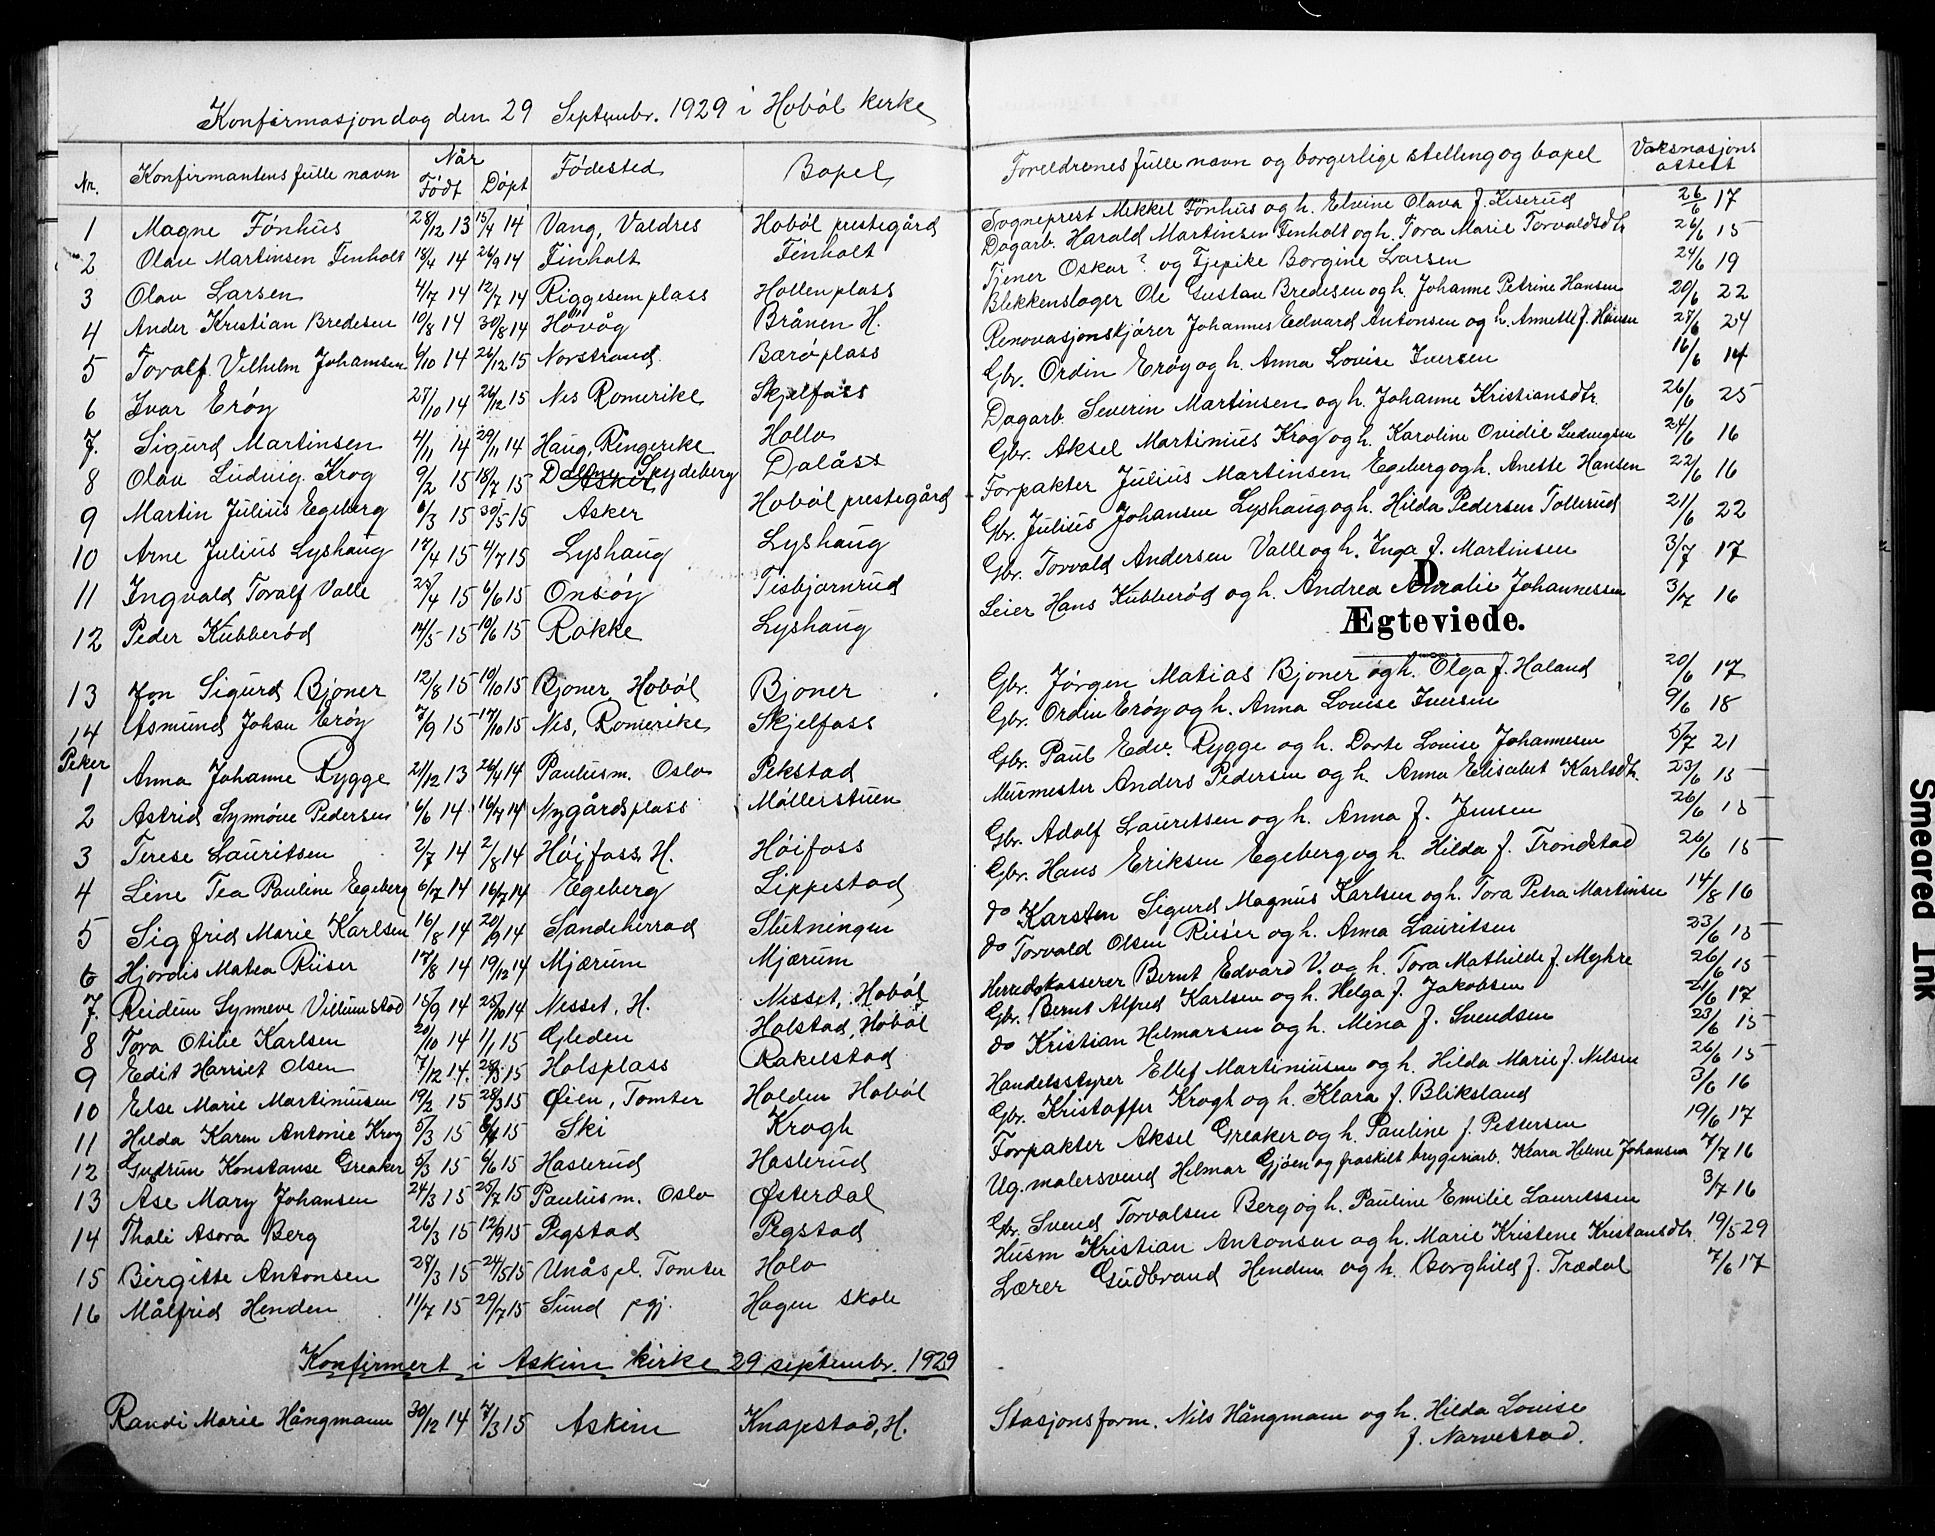 Konfirmasjondag den 29 Septembr. 1929 i Hobøl kirke
Nr. Konfirmantens fulle navn Når Født Døpt Fødested Bopel
1 Magne Fønhus 28/12 13 15/4 14 Vang, Valdres Hobøl prestegård
2 Olav Martinsen Finholt 18/4 14 26/9 14 Finholt Finholt
3 Olav Larsen 4/7 14 12/7 14 Riggesemplass Hollenplass
4 Ander Kristian Bredesen 19/8 14 30/8 14 Høvåg Brånen H.
5 Toralf Vilhelm Johansen 6/10 14 26/12 15 Norstrand Barøplass
6 Ivar Erøy 27/10 14 26/12 15 Nes Romerike Skjelfoss
7. Sigurd Martinsen 4/11 14 29/11 14 Haug, Ringerike Hollo
8 Olav Ludvig Krog 9/2 15 18/7 15 Skydeberg Dalåsx
9 Martin Julius Egeberg 6/3 15 30/5 15 Asker Hobøl prestegård
10 Arne Julius Lyshaug 17/4 15 4/7 15 Lyshaug Lyshaug
11 Ingvald Toralf Valle 25/4 15 6/6 15 Onsøy Tisbjørnrud
12 Peder Kubberød 14/5 15 19/6 15 Rakke Lyshaug
13 Jon Sigurd Bjoner 12/8 15 19/10 15 Bjoner Hobøl Bjoner
14 Åsmund Johan Erøy 7/9 15 17/10 15 Nes, Romerike Skjelfoss
Piker
1 Anna Johanne Rygge 21/12 13 26/4 14 Paulusm. Oslo Pekstad
2 Astrid Synnøve Pedersen 6/6 14 16/7 14 Nygårdsplass Møllerstuen
3 Terese Lauritsen 2/7 14 2/8 14 Høifoss, H. Høifoss
4 Line Tea Pauline Egeberg 6/7 14 16/7 14 Egeberg Lippestad
5 Sigfrid Marie Karlsen 16/8 14 20/9 14 Sandeherrad Slutningen
6 Hjørdis Matea Riiser 17/8 14 19/12 14 Mjærum Mjærum
7. Reidun Synneve Villumstad 15/9 14 25/10 14 Nesset, H. Nesset, Hobøl
8 Tora Otilie Karlsen 20/10 14 1/1 15 Gleden Holstad, Hobøl
9 Edit Harriet Olsen 7/12 14. 28/3 15 Holsplass Rakelstad
10 Else Marie Martiniusen 19/2 15 28/3 15 Øien, Tomter Holden Hobøl
11 Hilda Karen Antonie Krog 5/3 15 5/4 15 Ski Krogh
12 Gudrun Konstanse Greaker 5/3 15 6/6 15 Haslerud Haslerud
13 Åse Mary Johansen 24/3 15 25/7 15 Paulusm. Oslo Østerdal
14 Thali Asora Berg 26/3 15 12/9 15 Pegstad Pegstad
15 Birgitte Antonsen 28/3 15 24/5 15 Unåspl. Tomter Holo
16 Målfrid Henden 11/7 15 29/7 15 Sund pgj. Hagen skole
Konfirmert i Askim kirke 29 septembr. 1929
Randi Marie Hångmann 30/12 14 7/3 15 Askim Knapstad, H.
Foreldrenes fulle navn og borgerlige stelling og bopel Vaksnasjons attest
Sogneprest Mikkel Fønhus og h. Elvine Olava f. Kiserud 26/6 17
Dagarb. Harald Martinsen Finholt og h. Tora Marie Torvaldsdtr 26/6 15
Tjener Oskar? og Tjepike Borgine Larsen 24/6 19
Blikkenslager Ole Gustav Bredesen og h. Johanne Petrine Hansen 20/6 22
Renovasjonskjører Johannes Edvard Antonsen og h. Annette f. Hansen 27/6 24
Gbr. Ordin Erøy og h. Anna Lovise Iversen 16/6 14
Dagarb Severin Martinsen og h. Johanne Kristiansdtr. 26/6 25
Gbr. Aksel Martinius Krog og h. Karoline Ovidie Ludvigsen 24/6 16
Forpakter Julius Martinsen Egeberg og h. Anette Hansen 22/6 16
Gbr. Julius Johansen Lyshaug og h. Hilda Pedersen Tollerud 21/6 22
Gbr. Torvald Andersen Valle og h. Inga f. Martinsen 3/7 17
D.
Leier Hans Kubberød og h. Andrea Amalie Johannessen 3/7 16
Ægteviede.
Gbr. Jørgen Matias Bjoner og h. Olga f. Haland 20/6 17
Gbr. Ordin Erøy og h. Anna Lovise Iversen 9/6 18
Gbr. Paul Edv. Rygge og h. Dorte Lovise Johannesen 5/7 21
Murmester Anders Pedersen og h. Anna Elisabet Karlsdtr. 23/6 15
Gbr. Adolf Lauritsen og h. Anna f. Jensen 26/6 15
Gbr. Hans Eriksen Egeberg og h. Hilda f. Trondstad 26/6 15
do Karsten Sigurd Magnus Karlsen og h. Tora Petra Martinsen 14/8 16
do Torvald Olsen Riiser og h. Anna Lauritsen 23/6 15
Herredskasserer Bernt Edvard V. og h. Tora Mathilde f. Myhre 26/6 15
Gbr. Bernt Alfred Karlsen og h. Helga f. Jakobsen 21/6 17
do Kristian Hilmarsen og h. Mina f. Svendsen 23/6 15
Handelsstyrer Ellef Martiniusen og h. Hilda Marie f. Nilsen 26/6 15
Gbr. Kristoffer Krogh og h. Klara f. Bliksland 3/6 16
Forpakter Aksel Greaker og h. Pauline f. Pettersen 19/6 17
Ug. malersvend Hilmar Gjøen og fraskilt bryggeriarb. Klara Helene Johansen 7/7 16
Gbr. Svend Torvalsen Berg og h. Pauline Emilie Lauritssen 3/7 16
Husm Kristian Antonsen og h. Marie Kristene Kristansdtr. 19/5 29
Lærer Gudbrand Henden og h. Borghild f. Trædal 7/6 17
Stasjonsform. Nils Hångmann og h. Hilda Louise
f. Narvestad.
Smeared Ink